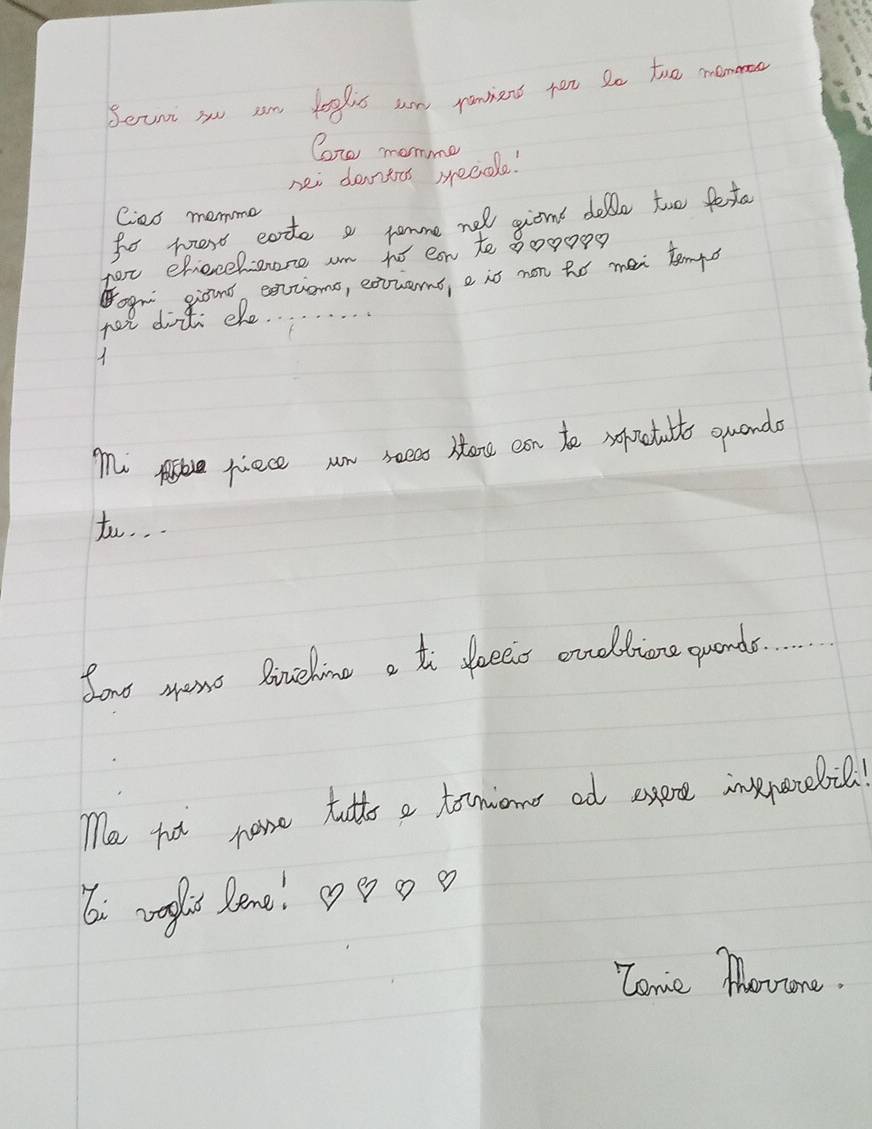 Scrivi su un foglio un pensiero per la tua mamma
Cara mamma
sei davvero speciale!
Ciao mamma
ho preso carta e penna nel giorno della tua festa
per chiacchierare un pò con te ♡♡♡♡♡♡
ogni giorno corriamo, corriamo, e io non ho mai tempo
per dirti che..........
1
Mi piace un sacco stare con te sopratutto quando
tu...
Sono spesso birichina e ti faccio arrabbiare quando.......
Ma poi passa tutto e torniamo ad essere inseparabili!
Ti voglio bene! ♡♡♡♡
Tania Marrone.